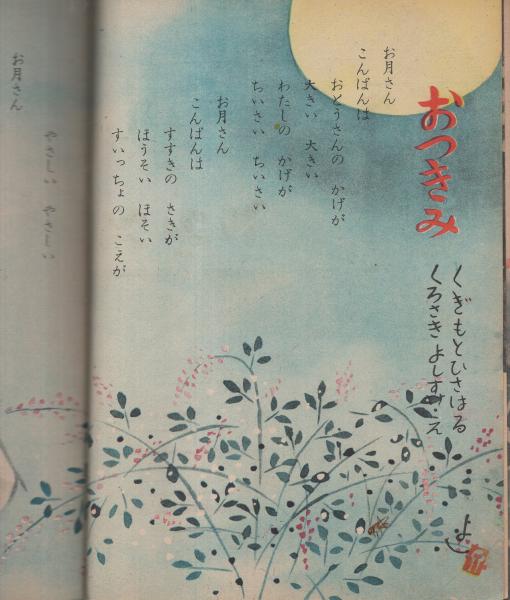 おつきみ
くぎもとひさはる
くろさきよしすけ・え
お月さん
こんばんは
おとうさんの かげが
大きい 大きい
わたしの かげが
ちいさい ちいさい
お月さん
こんばんは
すすきの さきが
ほうそい ほそい
すいっちょの こえが
やさしい やさしい
お月さん
よし